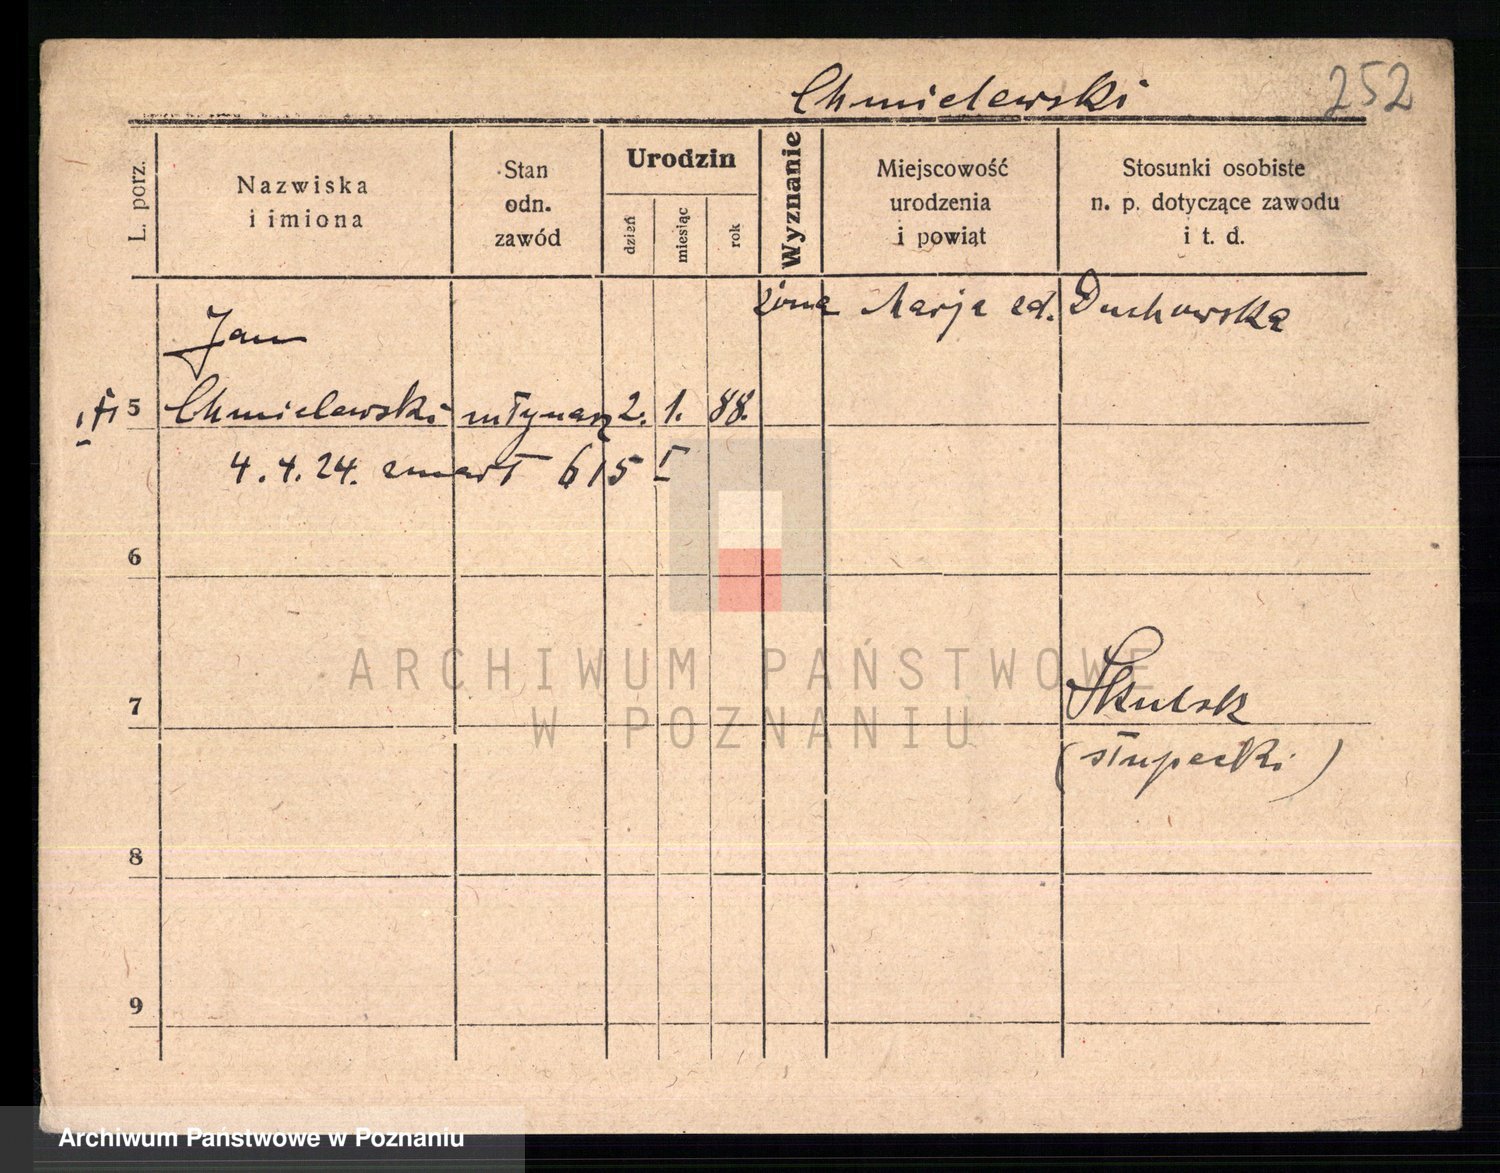 Chmielewski 252
L. porz.
Nazwiska
i imiona
Stan
odn.
zawód
Urodzin
dzień
miesiąc
rok
Wyznanie
Miejscowość
urodzenia
i powiat
Stosunki osobiste
n. p. dotyczące zawodu
i t. d.
żona Marja zd. Duchowska
Jan
5 Chmielewski młynarz 2. 1. 88.
4. 4. 24. zmarł 615 I
6
ARCHIWUM PAŃSTWOWE
W POZNANIU
7 Skulsk
(słupecki)
8
9
Archiwum Państwowe w Poznaniu